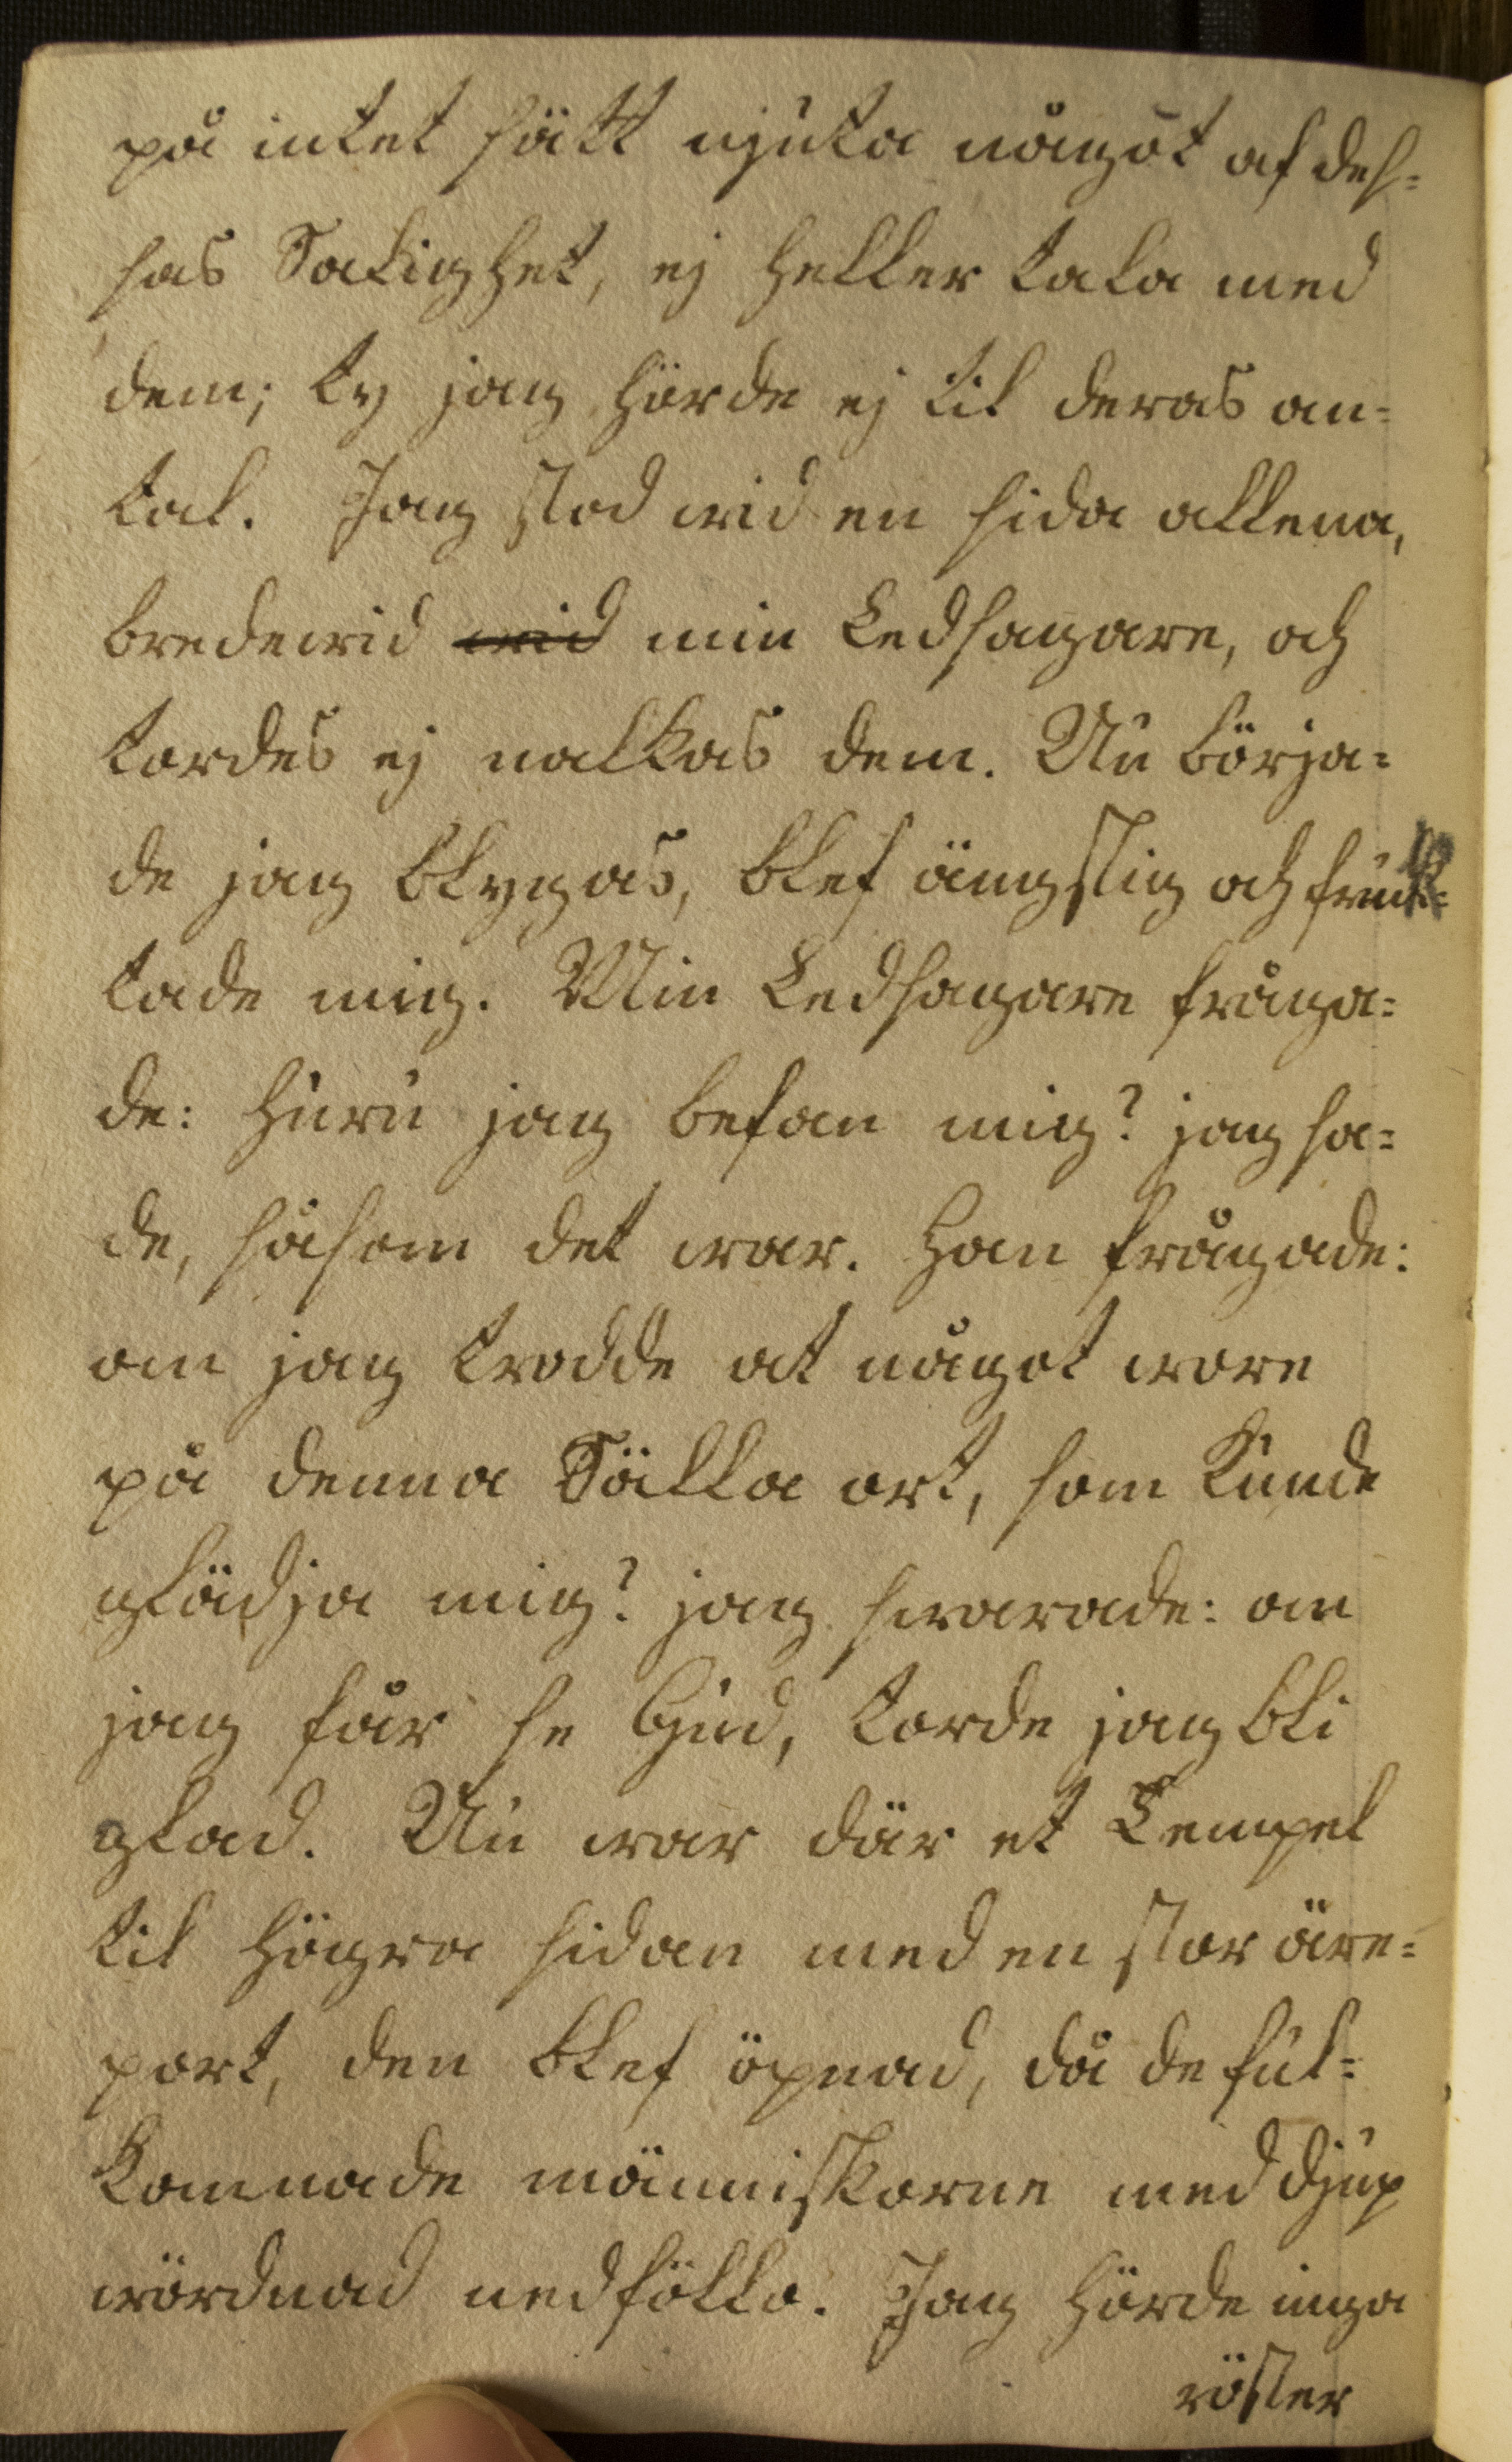 på intet sätt njuta något af des=
sas Salighet, ej heller tala med
dem; ty jag hörde ej til deras an=
tal. Jag stod wid en sida allena,
bredewid wid min Ledsagare, och
tordes ej nalkas dem. Nu börja=
de jag blygas, blef ängslig och fruk=
tade mig. Min Ledsagare fråga=
de: huru jag befan mig? jag sa=
de, såsom det war. Han frågade:
om jag trodde at något wore
på denna Sälla ort, som kunde
glädja mig? jag swarade: om
jag får se Gud, torde jag bli
glad. Nu war där et Tempel
til högra sidan med en stor äre=
port, den blef öpnad, då de ful=
komnade människorne med djup
wördnad nedföllo. Jag hörde inga
röster